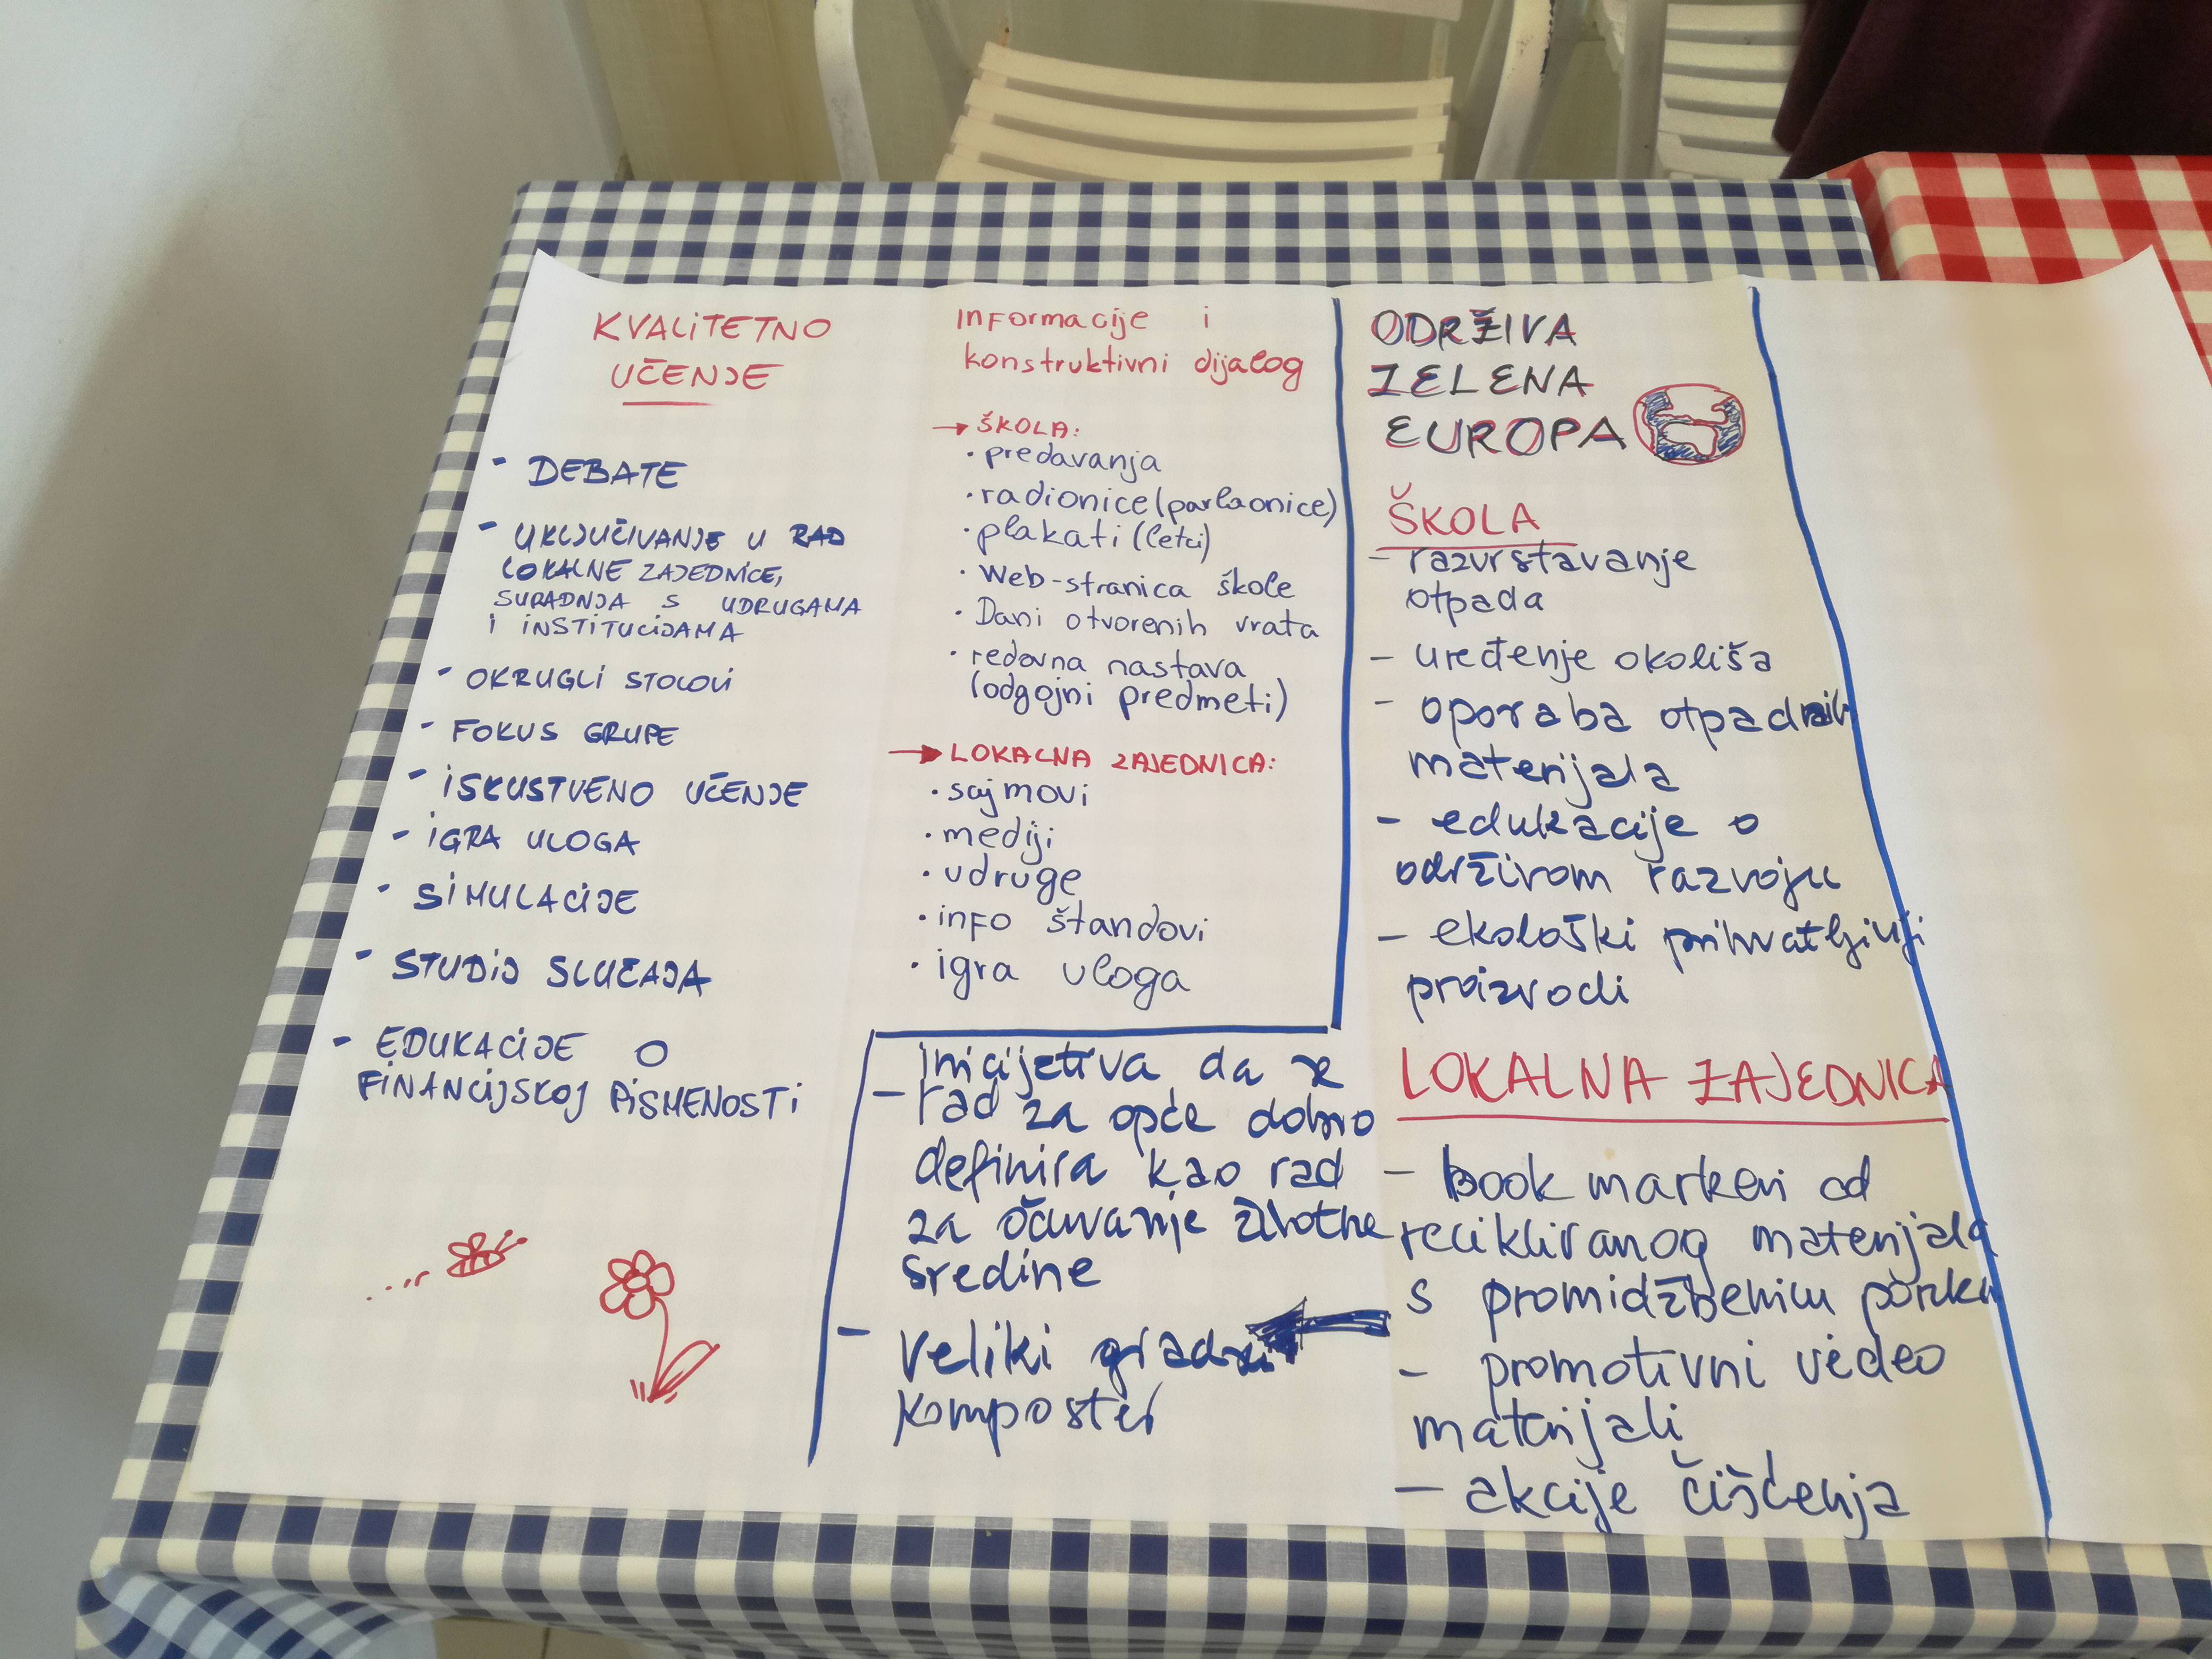 KVALITETNO
UČENJE
- DEBATE
- UKLJUČIVANJE U RAD
LOKALNE ZAJEDNICE,
SURADNJA S UDRUGAMA
I INSTITUCIJAMA
- OKRUGLI STOLOVI
- FOKUS GRUPE
- ISKUSTVENO UČENJE
- IGRA ULOGA
- SIMULACIJE
- STUDIJ SLUČAJA
- EDUKACIJE O
FINANCIJSKOJ PISMENOSTI
Informacije i
konstruktivni dijalog
→ ŠKOLA:
• predavanja
• radionice (parlaonice)
• plakati (letci)
• Web-stranica škole
• Dani otvorenih vrata
• redovna nastava
(odgojni predmeti)
→ LOKALNA ZAJEDNICA:
• sajmovi
• mediji
• udruge
• info štandovi
• igra uloga
ODRŽIVA
ZELENA
EUROPA
ŠKOLA
- razvrstavanje
otpada
- uređenje okoliša
- oporaba otpadnih
materijala
- edukacije o
održivom razvoju
- ekološki prihvatljiviji
proizvodi
LOKALNA ZAJEDNICA
- book markeri od
recikliranog materijala
s promidžbenim
- promotivni video
materijali
- akcije čišćenja
- Inicijativa da se
rad za opće dobro
definira kao rad
za očuvanje životne
sredine
- Veliki gradski
komposter